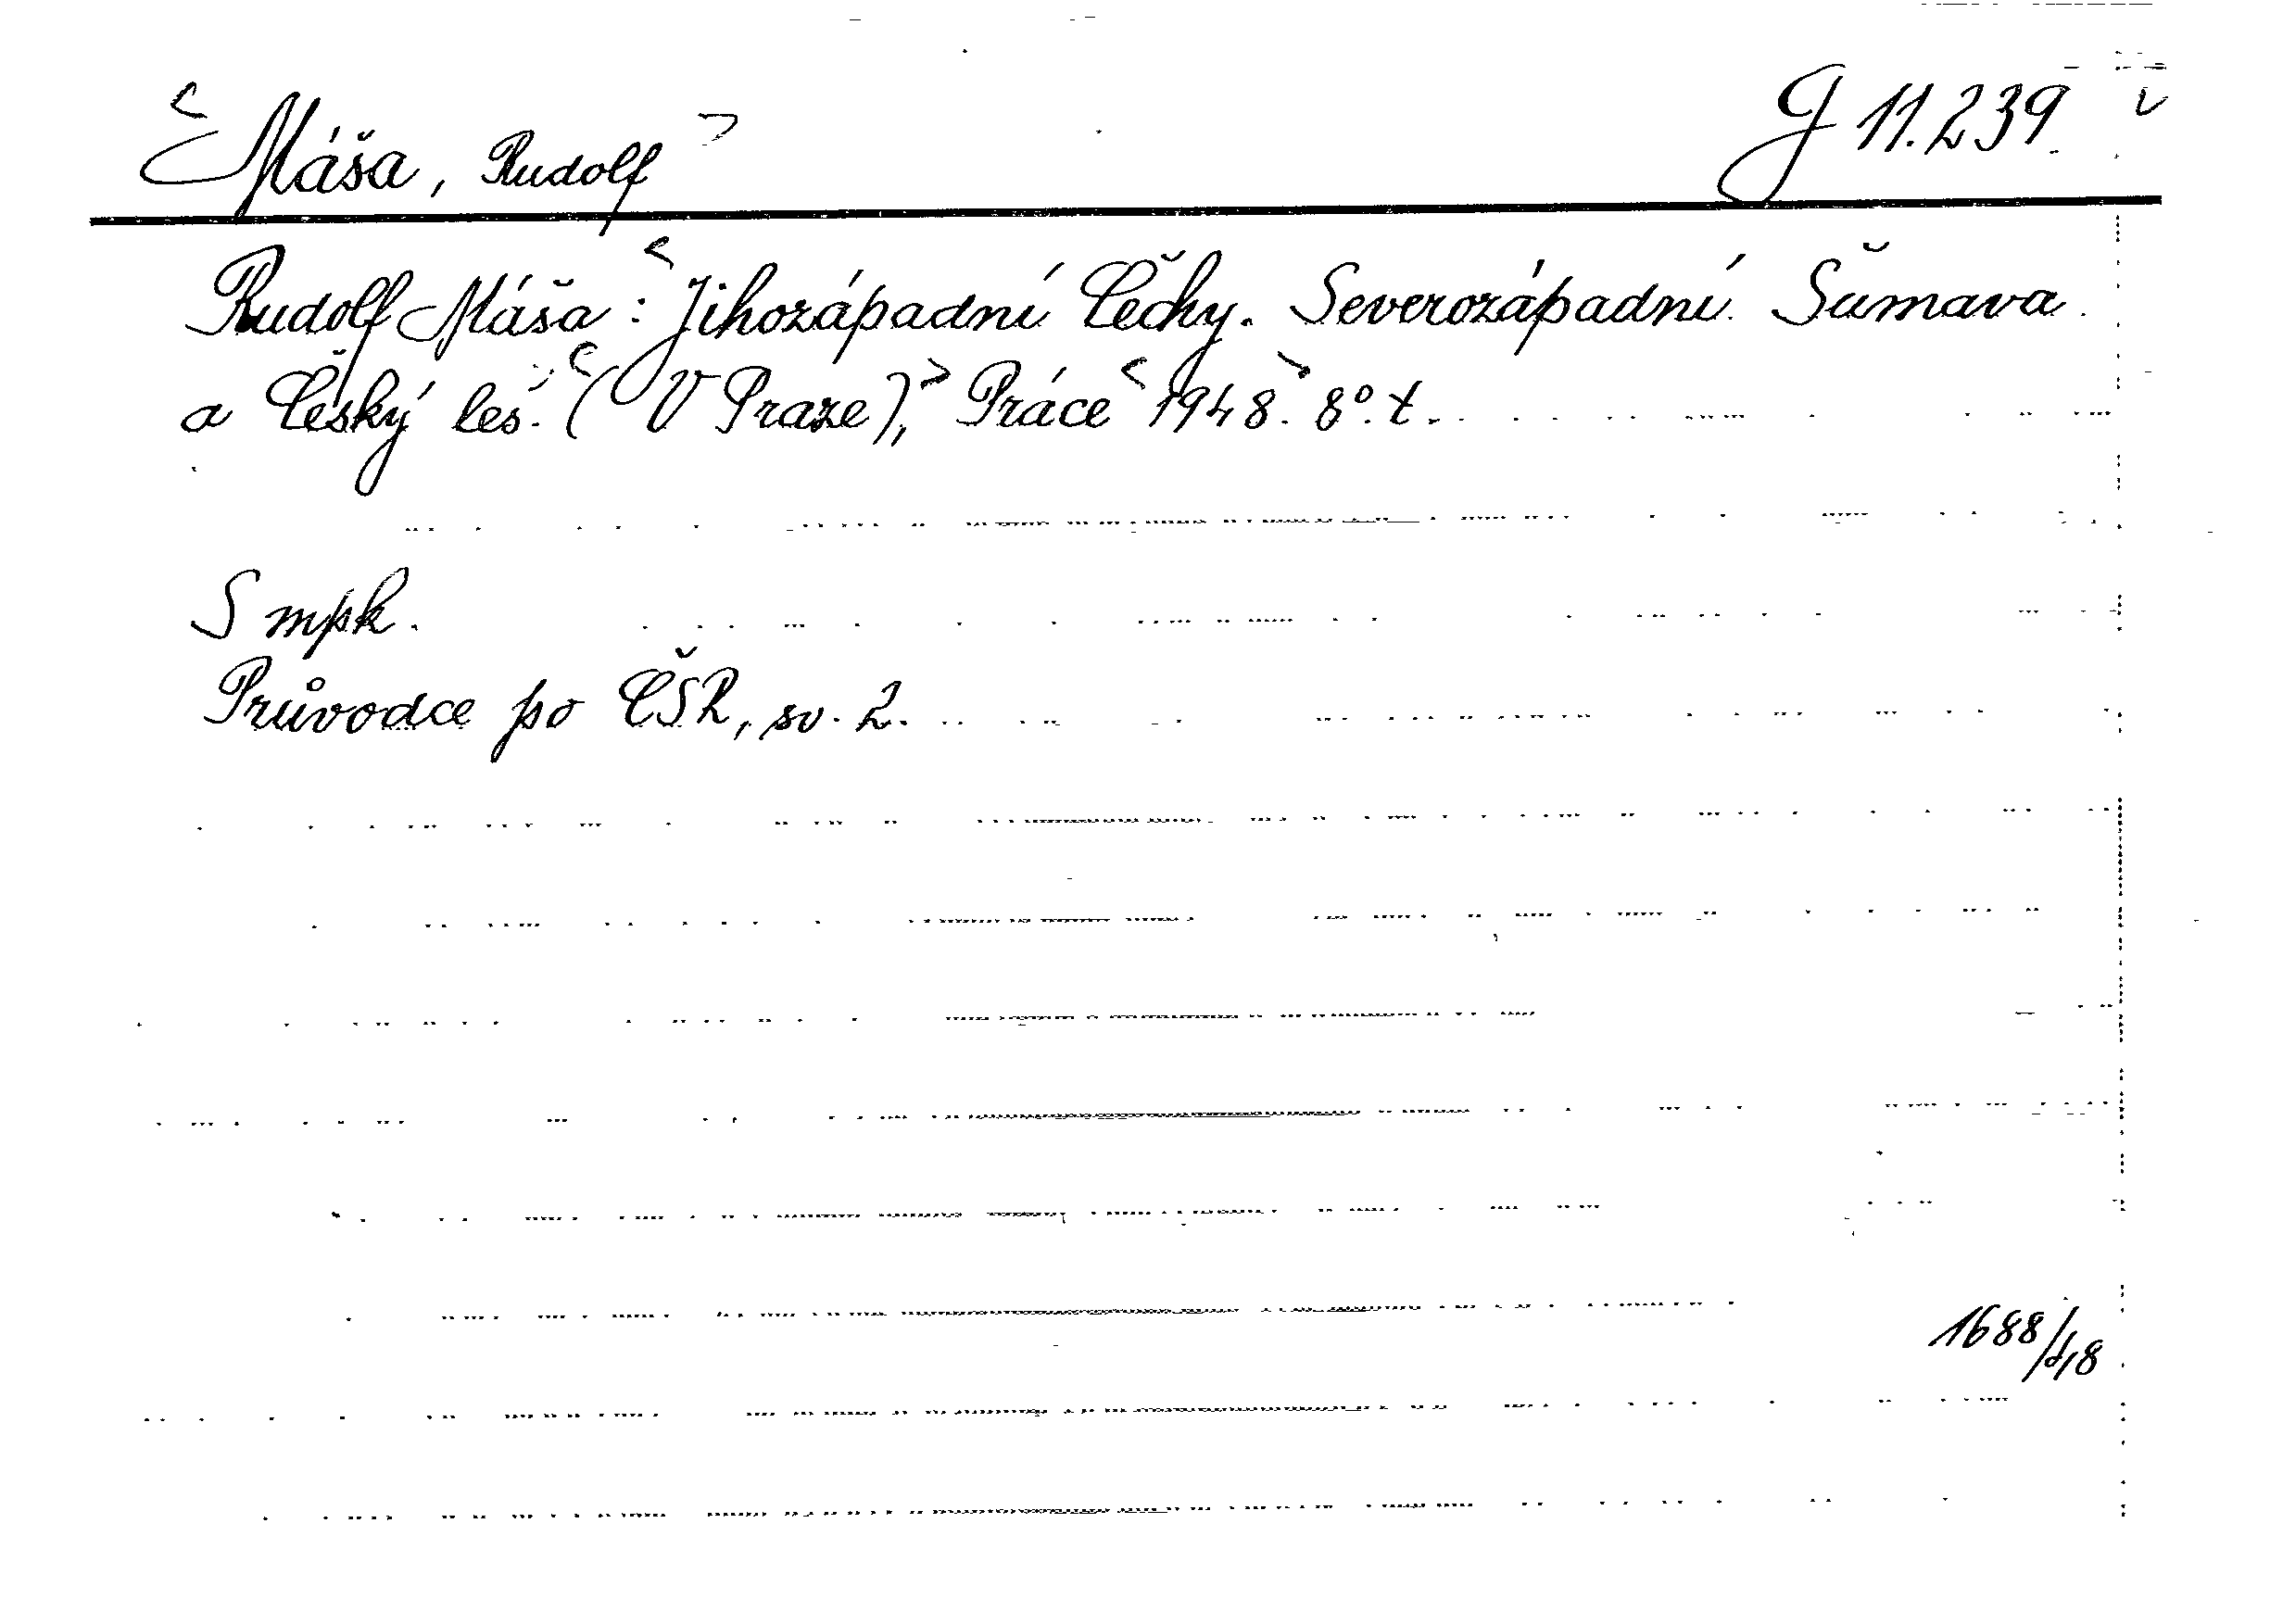 Máša, Rudolf
G 11.239
Rudolf Máša: Jihozápadní Čechy. Severozápadní Šumava
a Český les. (V Praze), Práce 1948. 8°. t.
S mpk.
Průvodce po ČSR, sv. 2.
1688/48